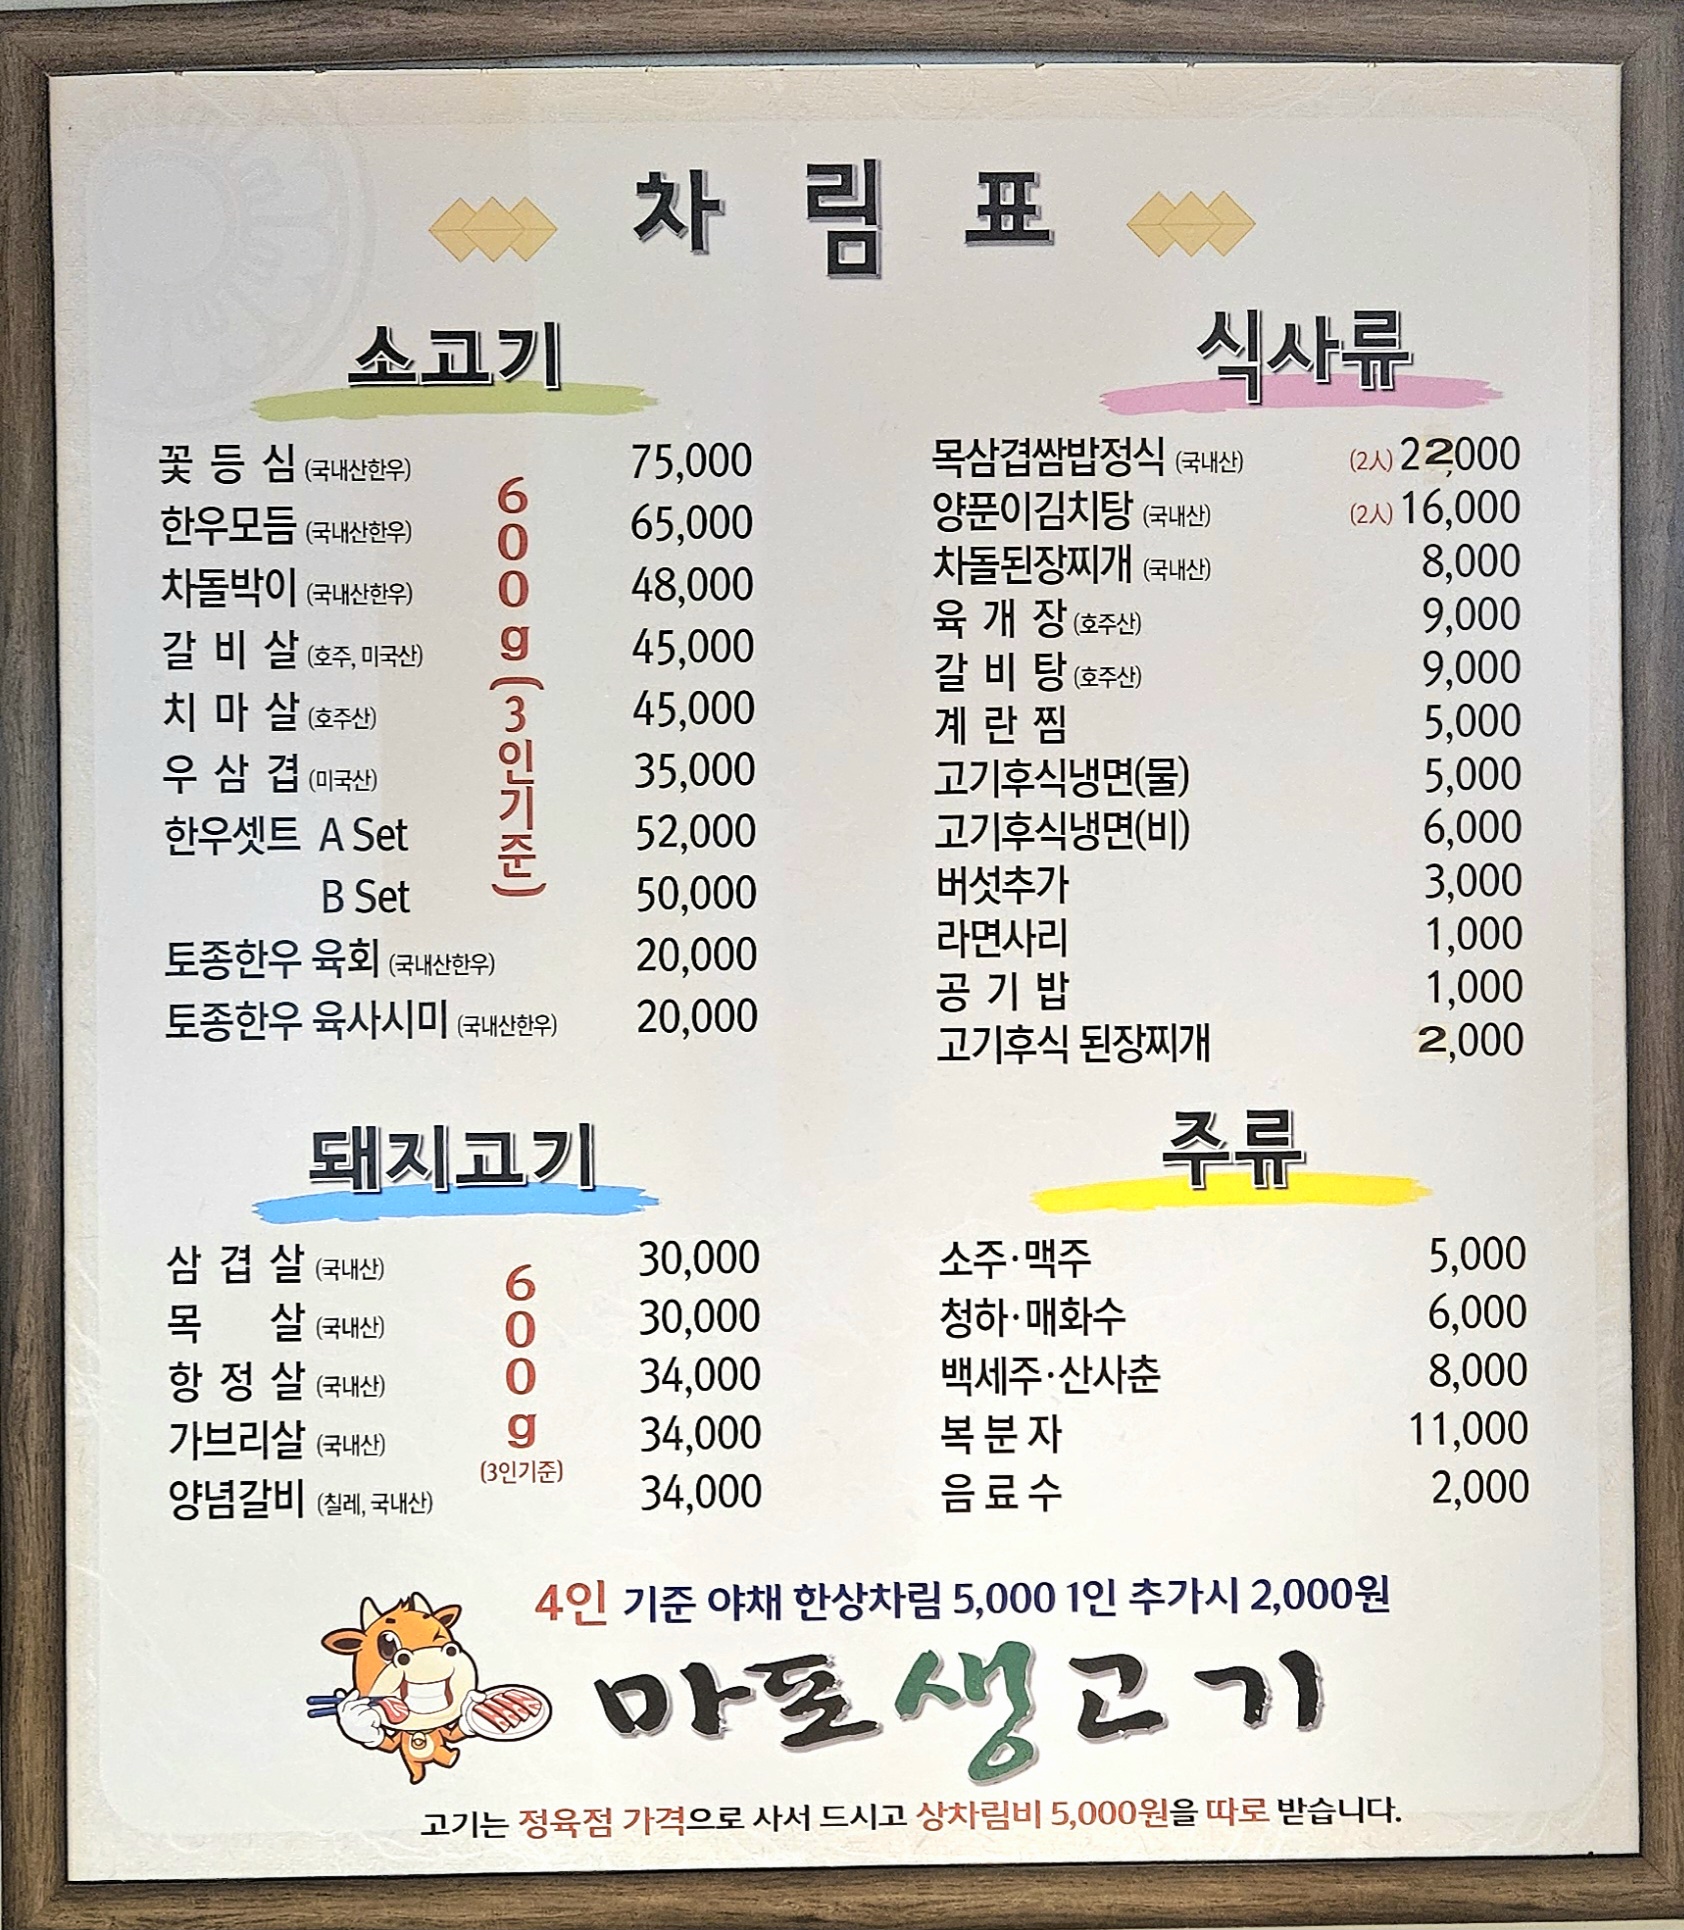 차 림 표
소고기
꽃 등 심 (국내산한우) 75,000
한우모듬 (국내산한우) 65,000
차돌박이 (국내산한우) 48,000
갈 비 살 (호주, 미국산) 45,000
치 마 살 (호주산) 45,000
우 삼 겹 (미국산) 35,000
한우셋트 A Set 52,000
B Set 50,000
600g(3인기준)
토종한우 육회 (국내산한우) 20,000
토종한우 육사시미 (국내산한우) 20,000
식사류
목삼겹쌈밥정식 (국내산) (2人) 22,000
양푼이김치탕 (국내산) (2人) 16,000
차돌된장찌개 (국내산) 8,000
육 개 장 (호주산) 9,000
갈 비 탕 (호주산) 9,000
계 란 찜 5,000
고기후식냉면(물) 5,000
고기후식냉면(비) 6,000
버섯추가 3,000
라면사리 1,000
공 기 밥 1,000
고기후식 된장찌개 2,000
돼지고기
삼 겹 살 (국내산) 30,000
목 살 (국내산) 30,000
항 정 살 (국내산) 34,000
가브리살 (국내산) 34,000
양념갈비 (칠레, 국내산) 34,000
600g
(3인기준)
주류
소주·맥주 5,000
청하·매화수 6,000
백세주·산사춘 8,000
복 분 자 11,000
음 료 수 2,000
4인 기준 야채 한상차림 5,000 1인 추가시 2,000원
마포생고기
고기는 정육점 가격으로 사서 드시고 상차림비 5,000원을 따로 받습니다.